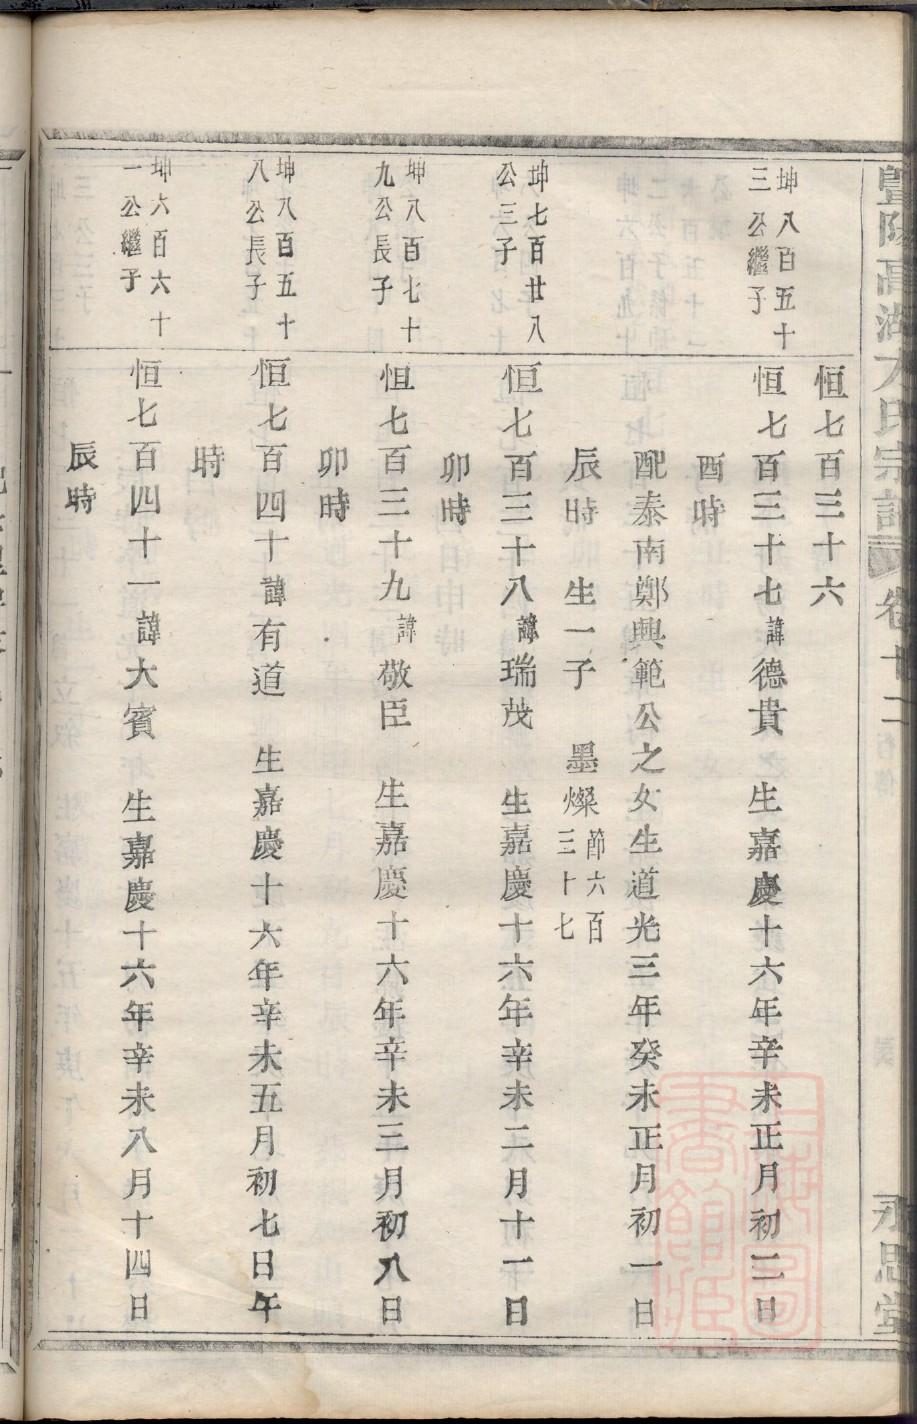 暨陽高湖方氏宗譜 卷十二 行傳 永思堂
恒七百三十六
坤八百五十三公繼子
恒七百三十七諱德貴 生嘉慶十六年辛未正月初二日
酉時
配泰南鄭興範公之女生道光三年癸未正月初一日
辰時 生一子 墨燦節六百三十七
坤七百廿八公三子
恒七百三十八諱瑞茂 生嘉慶十六年辛未二月十一日
卯時
坤八百七十九公長子
恒七百三十九諱敬臣 生嘉慶十六年辛未三月初八日
卯時
坤八百五十八公長子
恒七百四十諱有道 生嘉慶十六年辛未五月初七日午
時
坤六百六十一公繼子
恒七百四十一諱大賓 生嘉慶十六年辛未八月十四日
辰時
上海圖書館藏